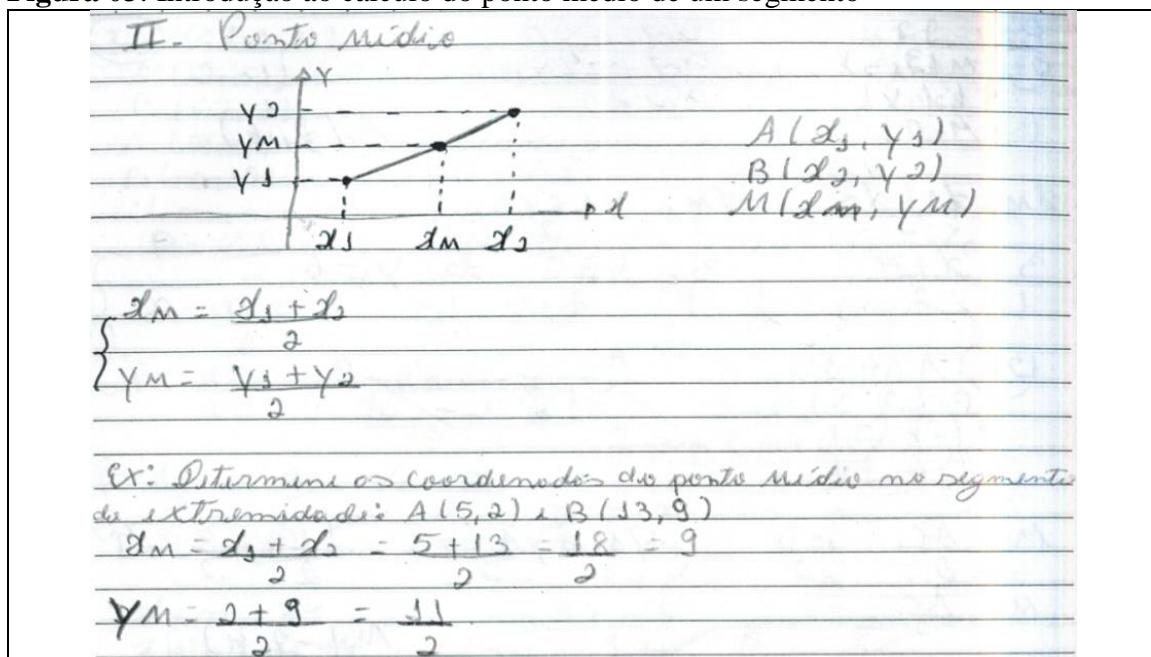 Figura 03: Introdução ao cálculo do ponto médio de um segmento
II- Ponto médio
Y
Y2
YM
Y1
x
x1 xM x2
A(x1, y1)
B(x2, y2)
M(xM, yM)
xM = x1 + x2 / 2
YM = Y1 + Y2 / 2
Ex: Determine as coordenadas do ponto médio no segmento
de extremidade: A(5,2) e B(13,9)
xM = x1 + x2 / 2 = 5 + 13 / 2 = 18 / 2 = 9
YM = 2 + 9 / 2 = 11 / 2